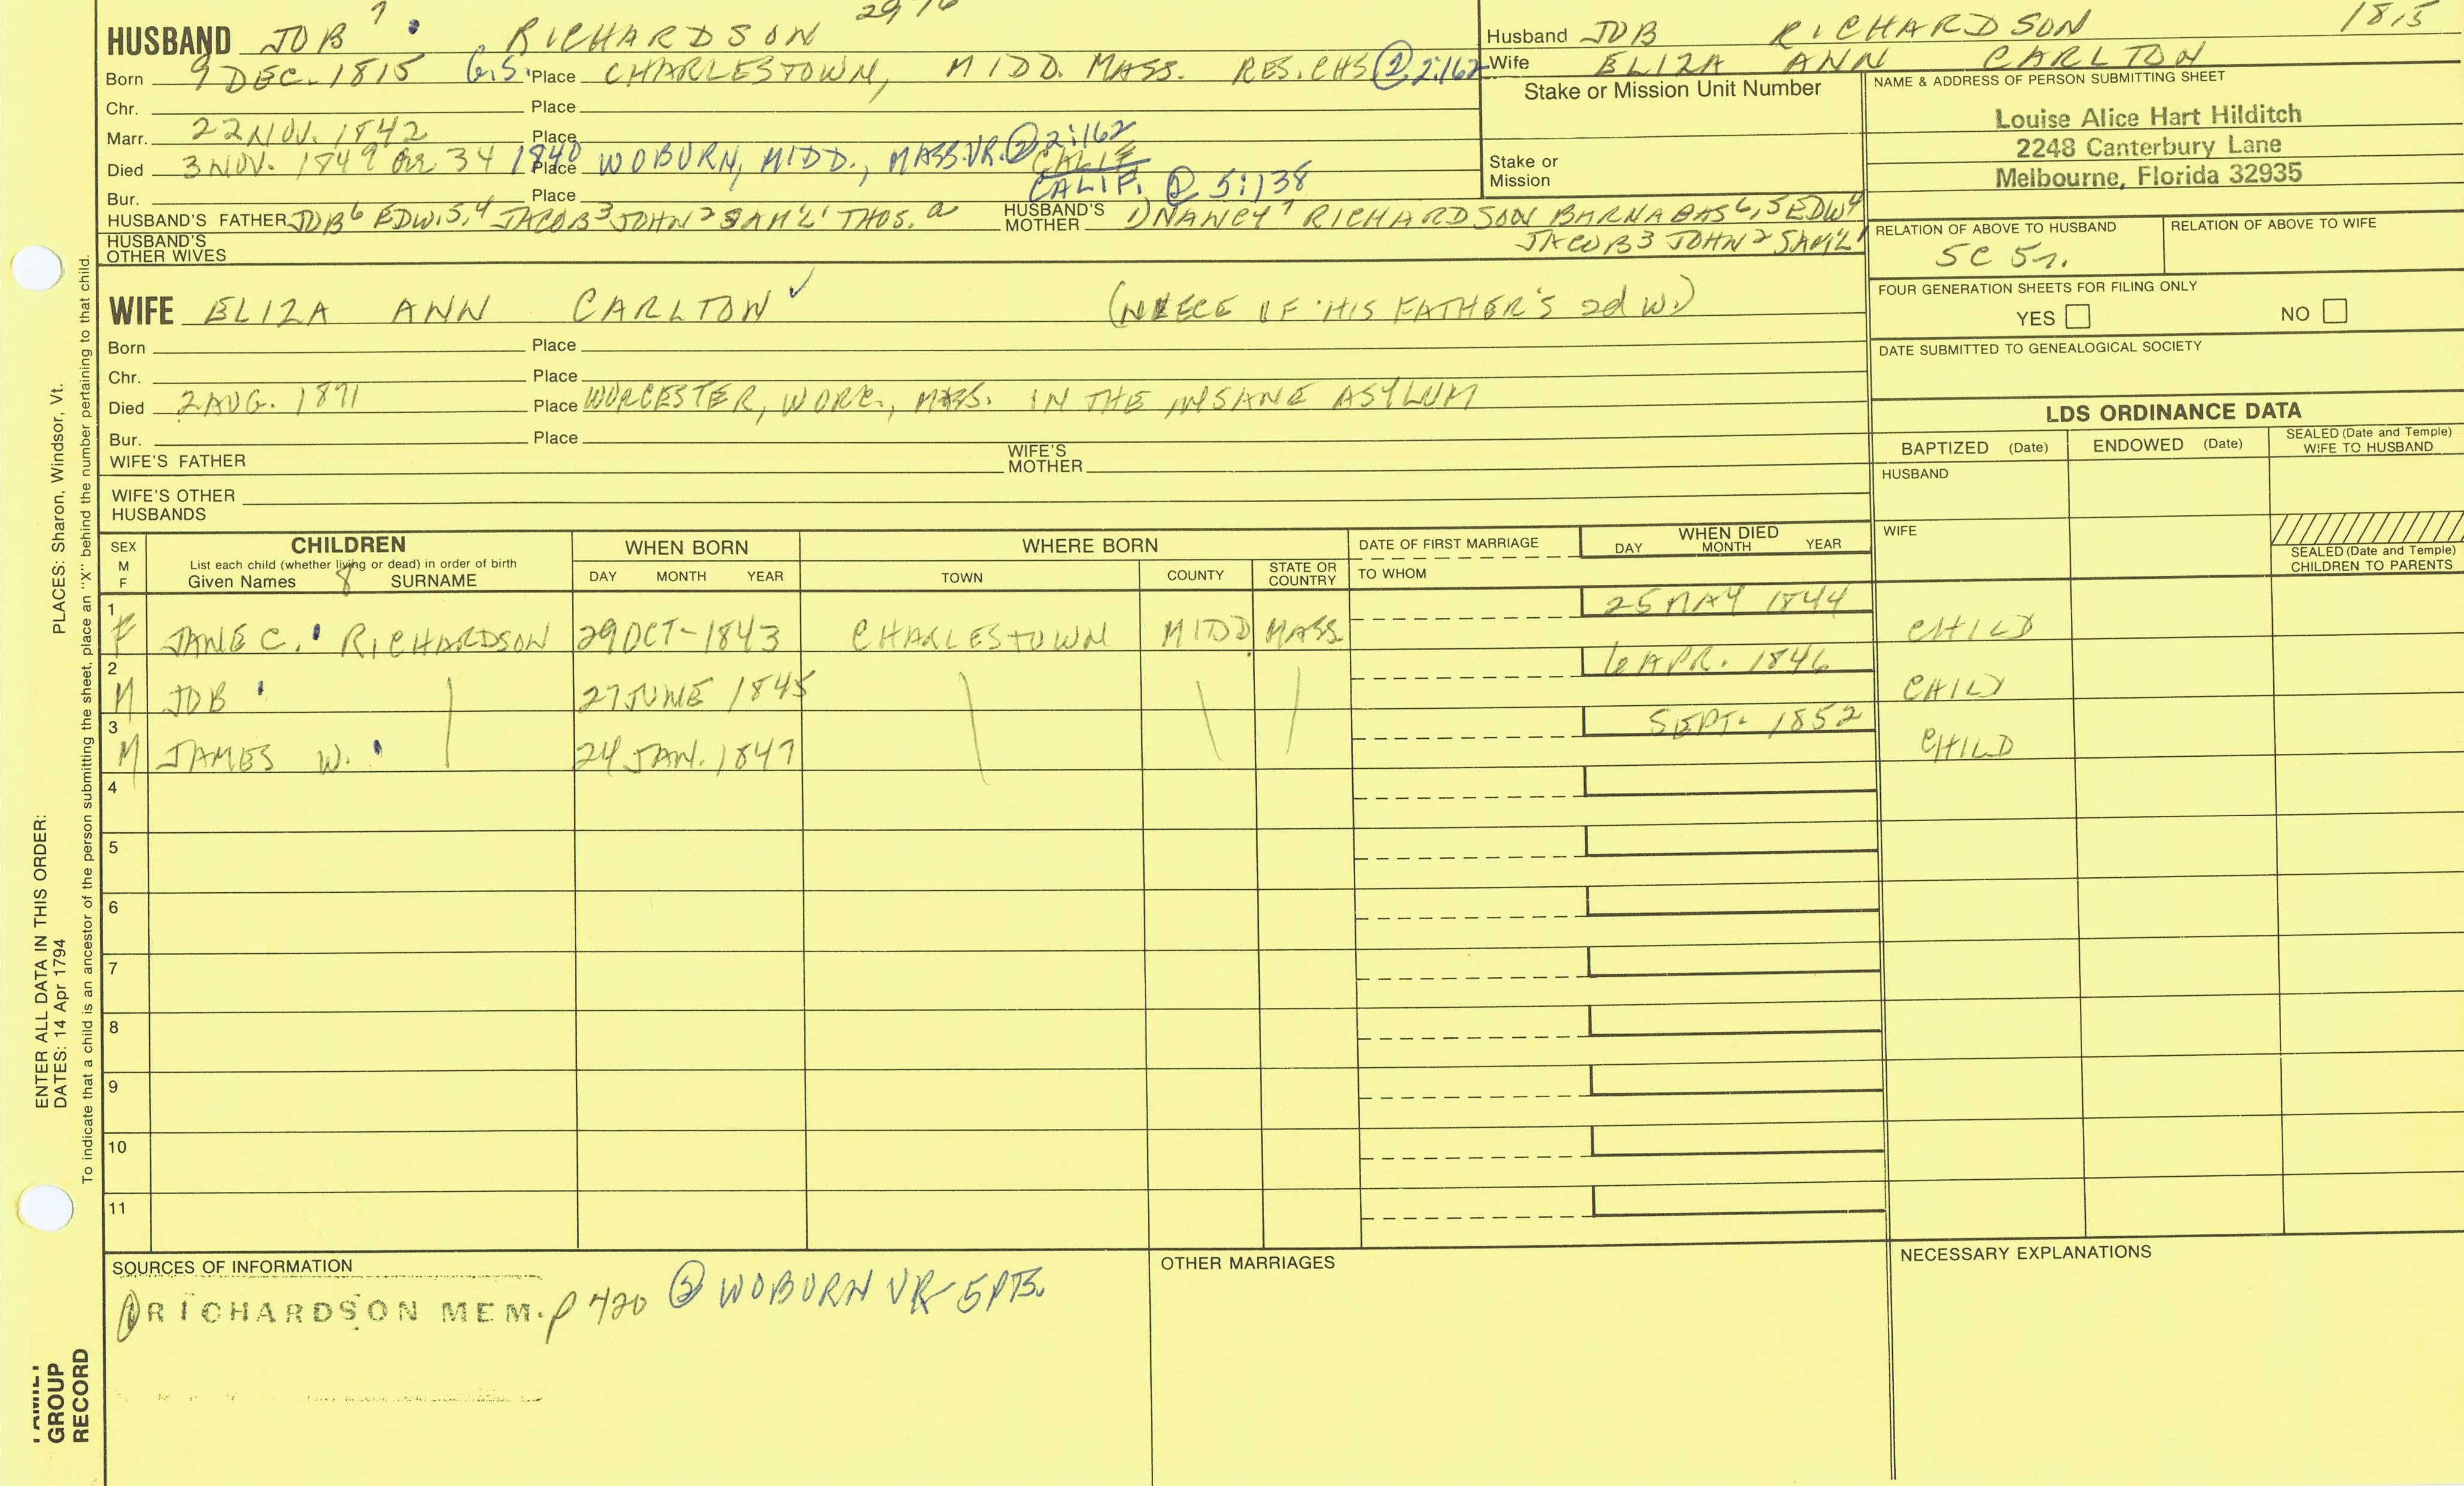 HUSBAND JOB 7 RICHARDSON
Husband JOB RICHARDSON 1815
Wife ELIZA ANN CARLTON
Born 9 DEC. 1815 G.S. Place CHARLESTOWN, MIDD. MASS. RES. CHS ② 2:162
Chr. Place
Marr. 22 NOV. 1842 Place
② 2:162
Died 3 NOV. 1849 34 1840 Place WOBURN, MIDD., MASS. VR.
CALIF
Bur. Place CALIF. @ 5:138
HUSBAND'S FATHER JOB 6 EDW. 5,4 JACOB 3 JOHN 2 SAM'L 1 THOS. a
HUSBAND'S MOTHER 1) NANCY 7 RICHARDSON BARNABAS 6,5 EDW 4
JACOB 3 JOHN 2 SAM'L 1
HUSBAND'S OTHER WIVES
Stake or Mission Unit Number
Stake or
Mission
NAME & ADDRESS OF PERSON SUBMITTING SHEET
Louise Alice Hart Hilditch
2248 Canterbury Lane
Melbourne, Florida 32935
RELATION OF ABOVE TO HUSBAND
5C 5r.
RELATION OF ABOVE TO WIFE
FOUR GENERATION SHEETS FOR FILING ONLY
YES NO
DATE SUBMITTED TO GENEALOGICAL SOCIETY
WIFE ELIZA ANN CARLTON ✓ (NIECE OF HIS FATHER'S 2d W.)
Born Place
Chr. Place
Died 2 AUG. 1871 Place WORCESTER, WORC., MASS. IN THE INSANE ASYLUM
Bur. Place
WIFE'S FATHER
WIFE'S MOTHER
WIFE'S OTHER
HUSBANDS
LDS ORDINANCE DATA
BAPTIZED (Date)
ENDOWED (Date)
SEALED (Date and Temple)
WIFE TO HUSBAND
HUSBAND
WIFE
SEALED (Date and Temple)
CHILDREN TO PARENTS
SEX
M
F
CHILDREN
List each child (whether living or dead) in order of birth
Given Names 8 SURNAME
WHEN BORN
DAY MONTH YEAR
WHERE BORN
TOWN
COUNTY
STATE OR COUNTRY
DATE OF FIRST MARRIAGE
TO WHOM
WHEN DIED
DAY MONTH YEAR
1 F JANE C. RICHARDSON 29 OCT-1843 CHARLESTOWN MIDD MASS 25 MAY 1844 CHILD
2 M JOB 27 JUNE 1845 6 APR. 1846 CHILD
3 M JAMES W. 24 JAN. 1847 SEPT- 1852 CHILD
4
5
6
7
8
9
10
11
SOURCES OF INFORMATION
① RICHARDSON MEM. p 420 ② WOBURN VR- 5 PTS.
OTHER MARRIAGES
NECESSARY EXPLANATIONS
ENTER ALL DATA IN THIS ORDER:
DATES: 14 Apr 1794
PLACES: Sharon, Windsor, Vt.
To indicate that a child is an ancestor of the person submitting the sheet, place an "X" behind the number pertaining to that child.
FAMILY
GROUP
RECORD